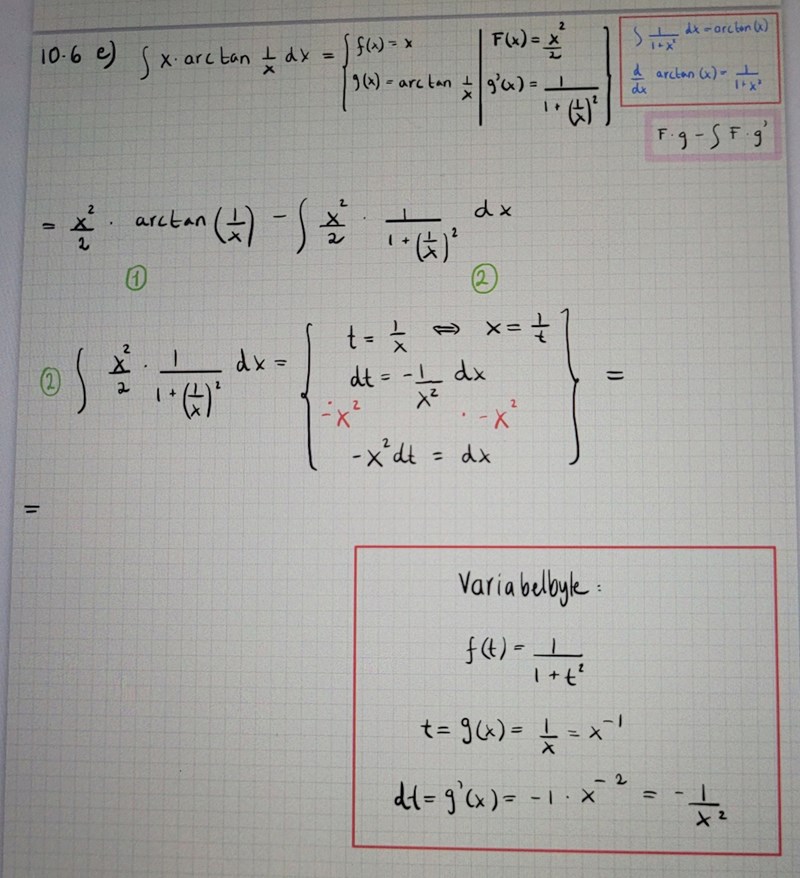 10.6 e) ∫ x · arctan 1/x dx = { f(x) = x | F(x) = x²/2
g(x) = arctan 1/x | g'(x) = 1/(1 + (1/x)²) }
∫ 1/(1+x²) dx = arctan(x)
d/dx arctan(x) = 1/(1+x²)
F · g - ∫ F · g'
= x²/2 · arctan(1/x) - ∫ x²/2 · 1/(1 + (1/x)²) dx
① ②
② ∫ x²/2 · 1/(1 + (1/x)²) dx = { t = 1/x ⇔ x = 1/t
dt = -1/x² dx
· -x² · -x²
-x² dt = dx } =
=
Variabelbyte:
f(t) = 1/(1 + t²)
t = g(x) = 1/x = x⁻¹
dt = g'(x) = -1 · x⁻² = -1/x²